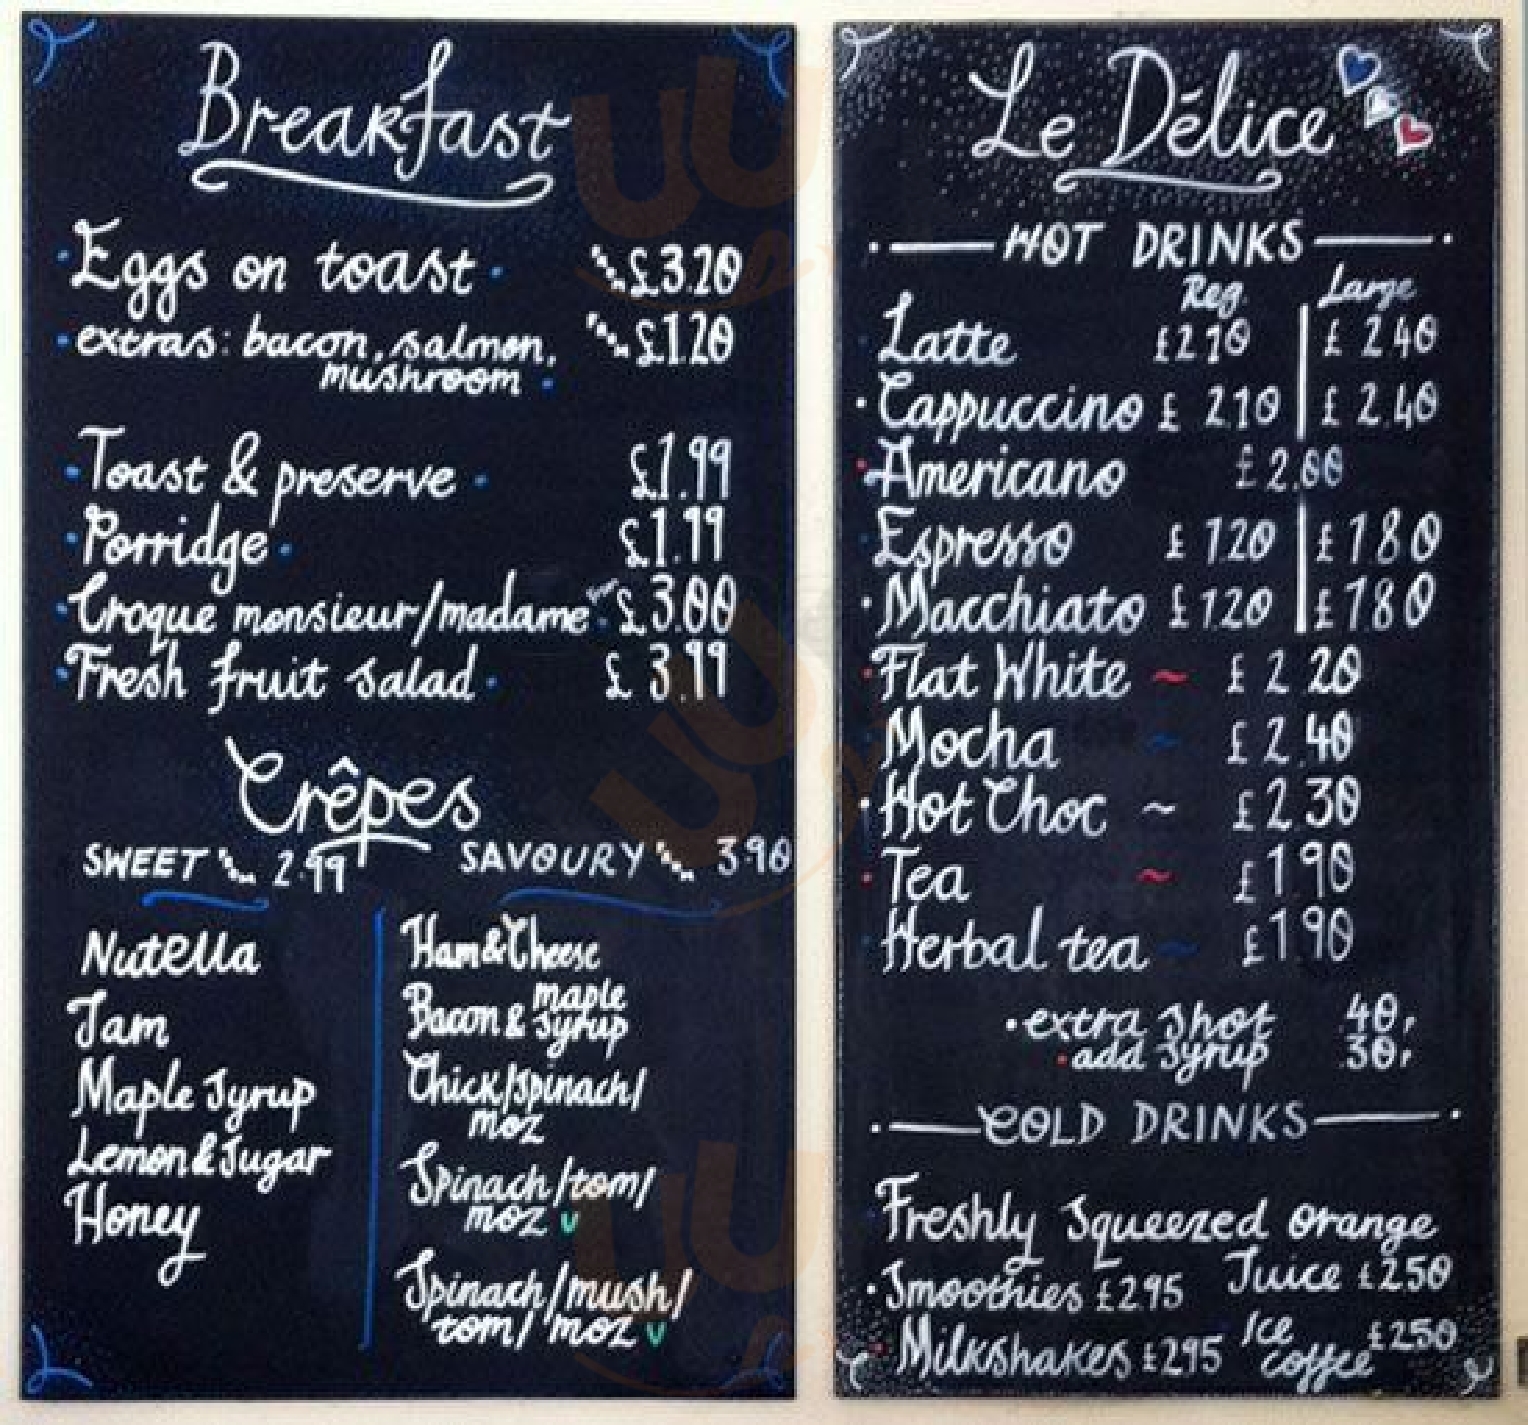 Breakfast
Eggs on toast £3.20
extras: bacon, salmon, £1.20
mushroom
Toast & preserve £1.99
Porridge £1.99
Croque monsieur/madame £3.00
Fresh fruit salad £3.99
Crêpes
SWEET 2.99
Nutella
Jam
Maple Syrup
Lemon & Sugar
Honey
SAVOURY 3.90
Ham & Cheese
Bacon & maple
syrup
Chick/Spinach/
moz
Spinach/tom/
moz v
Spinach/mush/
tom/ moz v
Le Délice
HOT DRINKS
Reg. Large
Latte £2.10 £2.40
Cappuccino £2.10 £2.40
Americano £2.00
Espresso £1.20 £1.80
Macchiato £1.20 £1.80
Flat White ~ £2.20
Mocha ~ £2.40
Hot Choc ~ £2.30
Tea ~ £1.90
Herbal tea ~ £1.90
extra shot 40p
add syrup 30p
COLD DRINKS
Freshly Squeezed Orange
Juice £2.50
Smoothies £2.95
Milkshakes £2.95
Ice
coffee £2.50